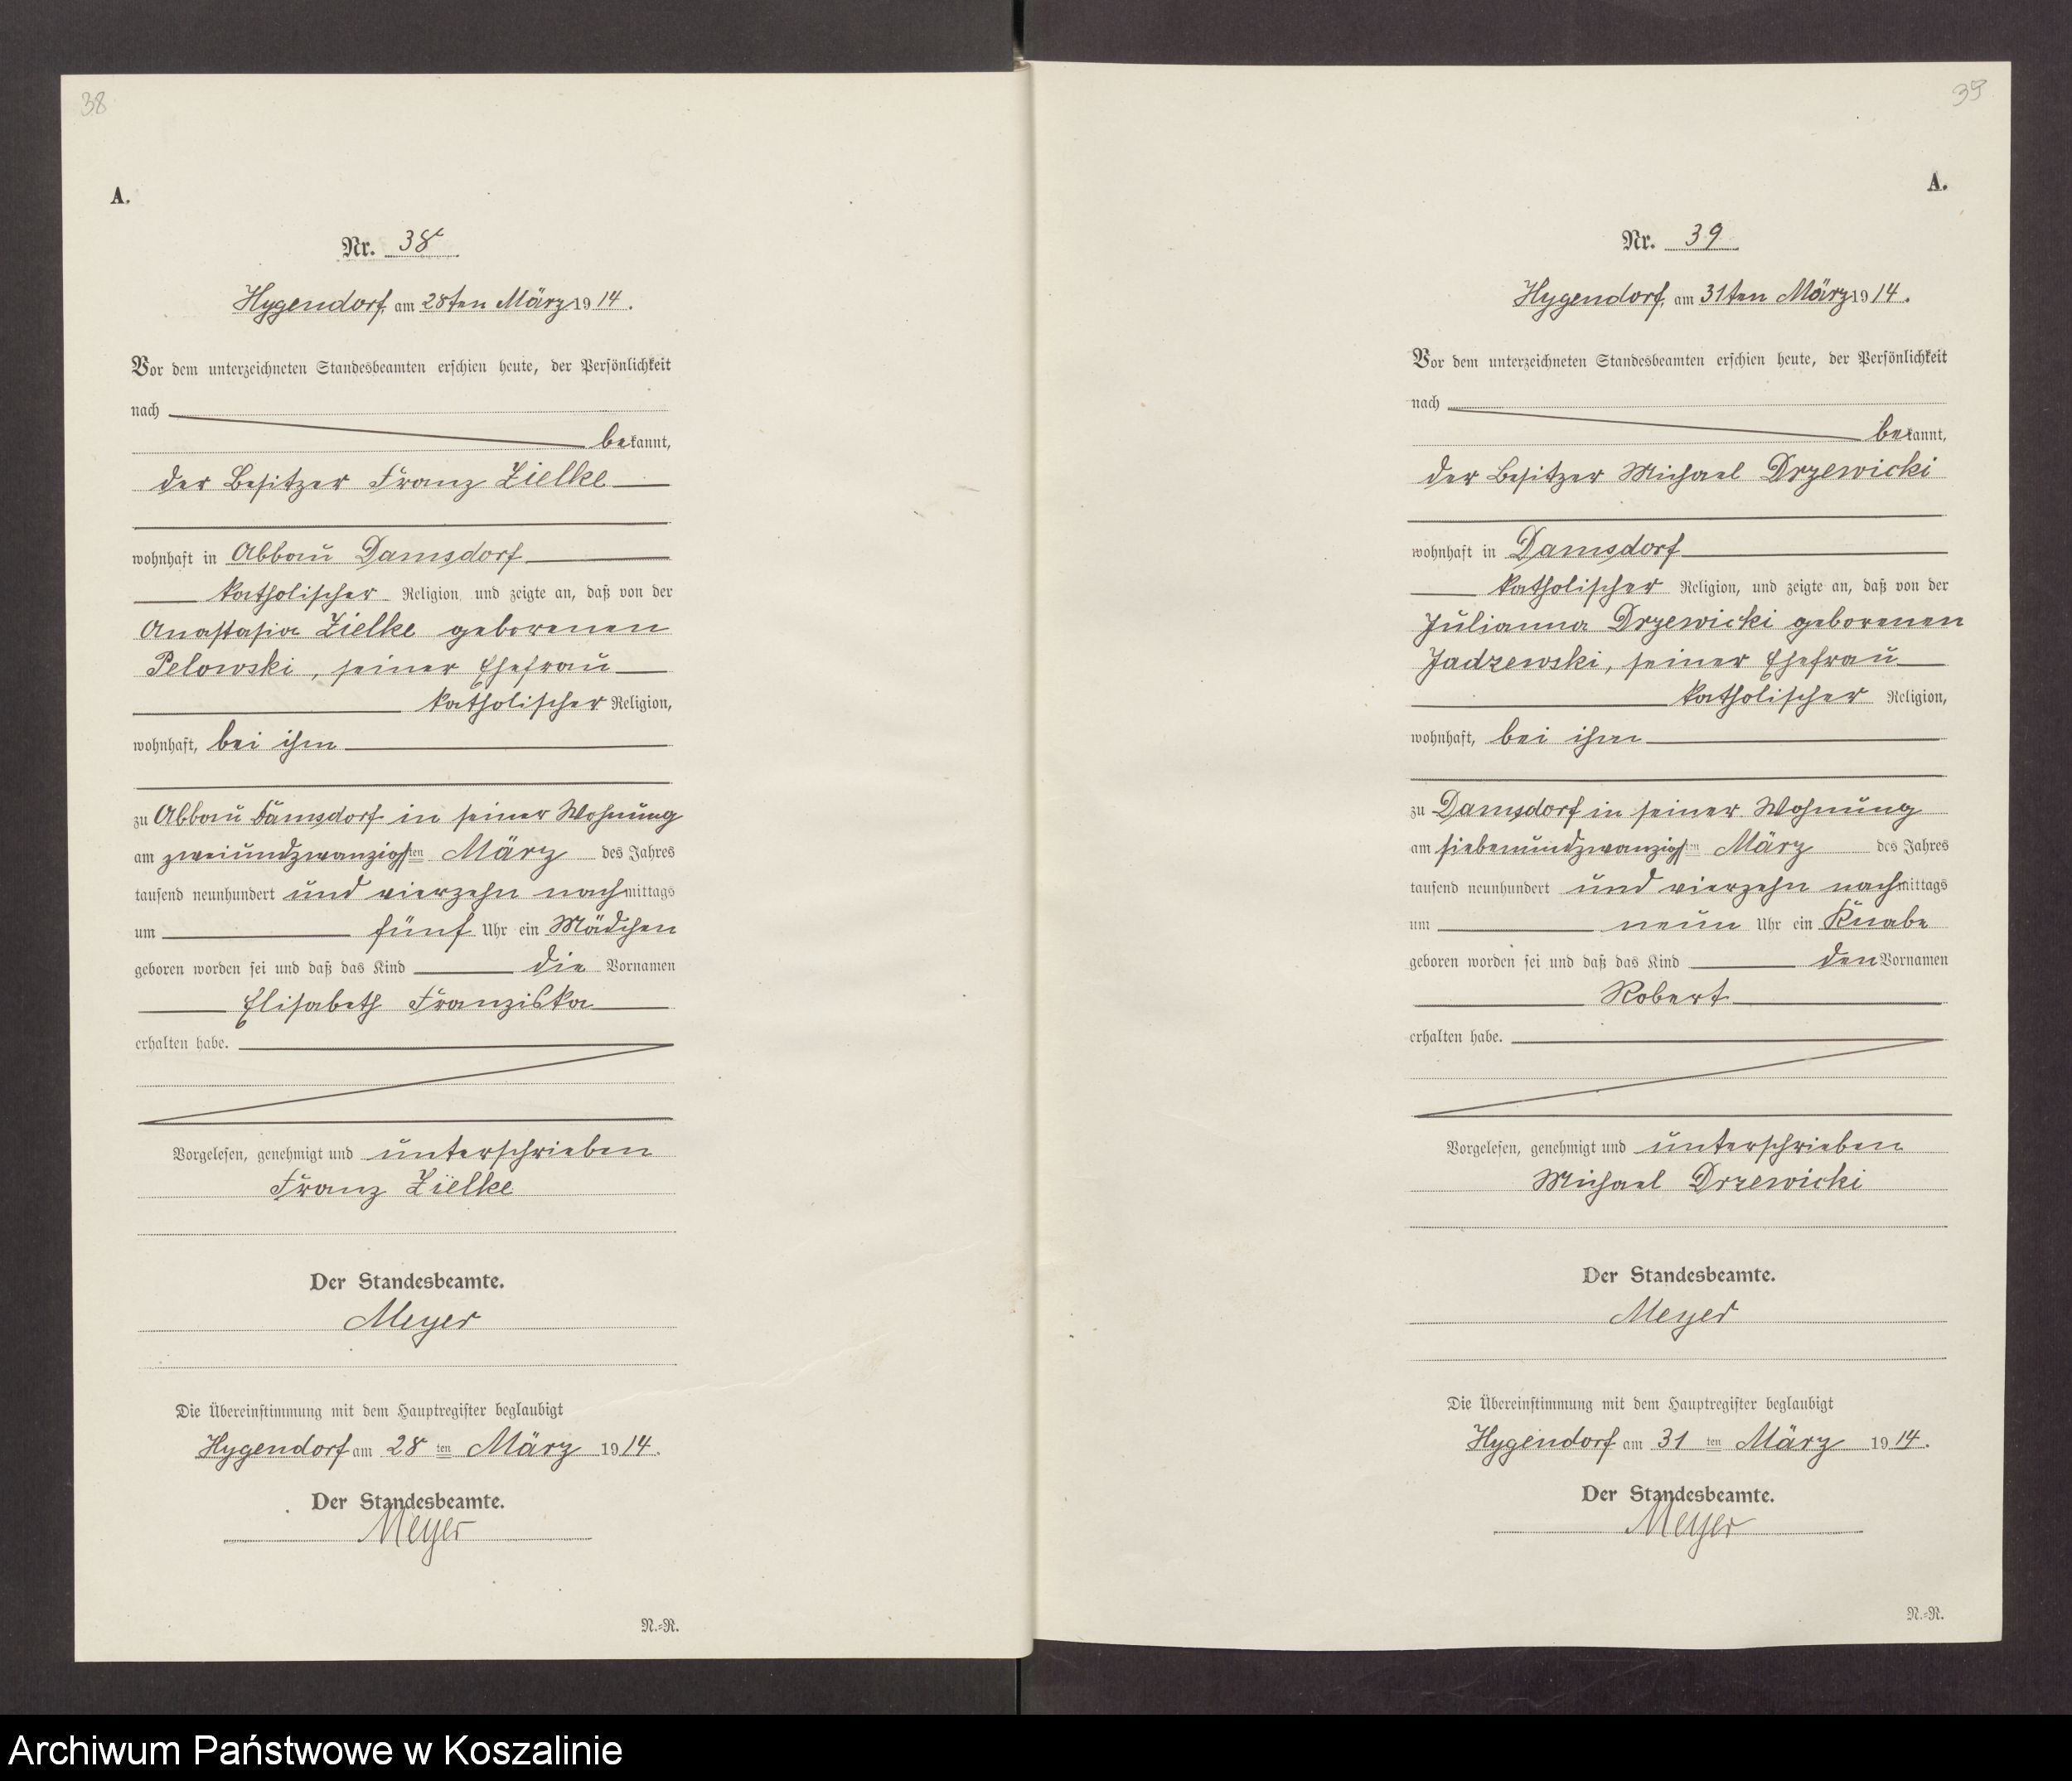 38
A.
Nr. 38
Hygendorf, am 28ten März 1914.
Vor dem unterzeichneten Standesbeamten erschien heute, der Persönlichkeit
nach
bekannt,
der Besitzer Franz Zielke
wohnhaft in Abbau Damsdorf
katholischer Religion, und zeigte an, daß von der
Anastasia Zielke geborenen
Pelowski, seiner Ehefrau
katholischer Religion,
wohnhaft, bei ihm
zu Abbau Damsdorf in seiner Wohnung
am zweiundzwanzigsten März des Jahres
tausend neunhundert und vierzehn nachmittags
um fünf Uhr ein Mädchen
geboren worden sei und daß das Kind die Vornamen
Elisabeth Franziska
erhalten habe.
Vorgelesen, genehmigt und unterschrieben
Franz Zielke
Der Standesbeamte.
Meyer
Die Übereinstimmung mit dem Hauptregister beglaubigt
Hygendorf am 28 ten März 1914.
Der Standesbeamte.
Meyer
N.=R.
39
A.
Nr. 39
Hygendorf, am 31ten März 1914.
Vor dem unterzeichneten Standesbeamten erschien heute, der Persönlichkeit
nach
bekannt,
der Besitzer Michael Drzewicki
wohnhaft in Damsdorf
katholischer Religion, und zeigte an, daß von der
Julianna Drzewicki geborenen
Jadzewski, seiner Ehefrau
katholischer Religion,
wohnhaft, bei ihm
zu Damsdorf in seiner Wohnung
am siebenundzwanzigsten März des Jahres
tausend neunhundert und vierzehn nachmittags
um neun Uhr ein Knabe
geboren worden sei und daß das Kind den Vornamen
Robert
erhalten habe.
Vorgelesen, genehmigt und unterschrieben
Michael Drzewicki
Der Standesbeamte.
Meyer
Die Übereinstimmung mit dem Hauptregister beglaubigt
Hygendorf am 31 ten März 1914.
Der Standesbeamte.
Meyer
N.=R.
Archiwum Państwowe w Koszalinie